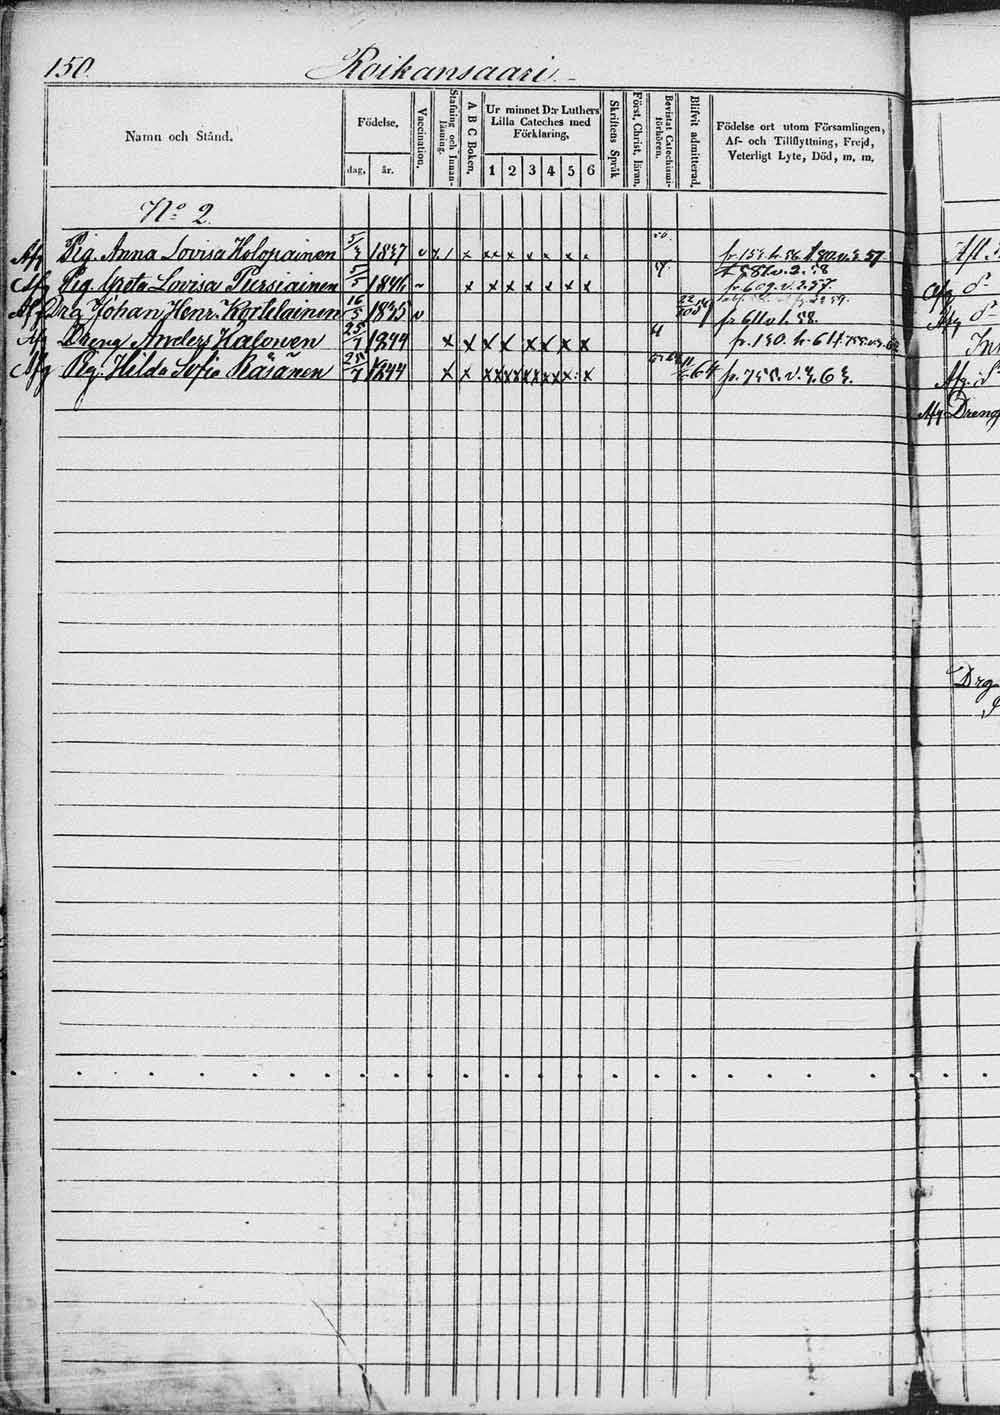 150.
Roikansaari.
Namn och Stånd.
Födelse,
dag,
år.
Vaccination.
Stafning och Innan-
läsning.
A B C Boken.
Ur minnet D:r Luthers
Lilla Cateches med
Förklaring,
1 2 3 4 5 6
Skriftens Språk
Först, Christ, läran.
Bevistat Catechismi-
förhören.
Blifvit admitterad.
Födelse ort utom Församlingen,
Af- och Tillflyttning, Frejd,
Veterligt Lyte, Död, m. m.
No 2.
Afg Pig. Anna Lovisa Holopainen 5/3 1837 v x x x x x x x x
Afg Pig. Greta Lovisa Pursiainen 1846 x x x x x x x fr. 609. v. 2. 57.
Afg Drg Johan Henr. Kortelainen 16/5 1835 v fr 611 v. 1. 58.
Afg Dreng Anders Halonen 25/1 1844 x x x x x x x x fr. 130.
Afg Pig: Hilda Sofia Räsänen 1844 x x x x x x x x 64 fr. 755. v. 3. 63.
Afg
Afg
Afg
Afg Dreng
Drg